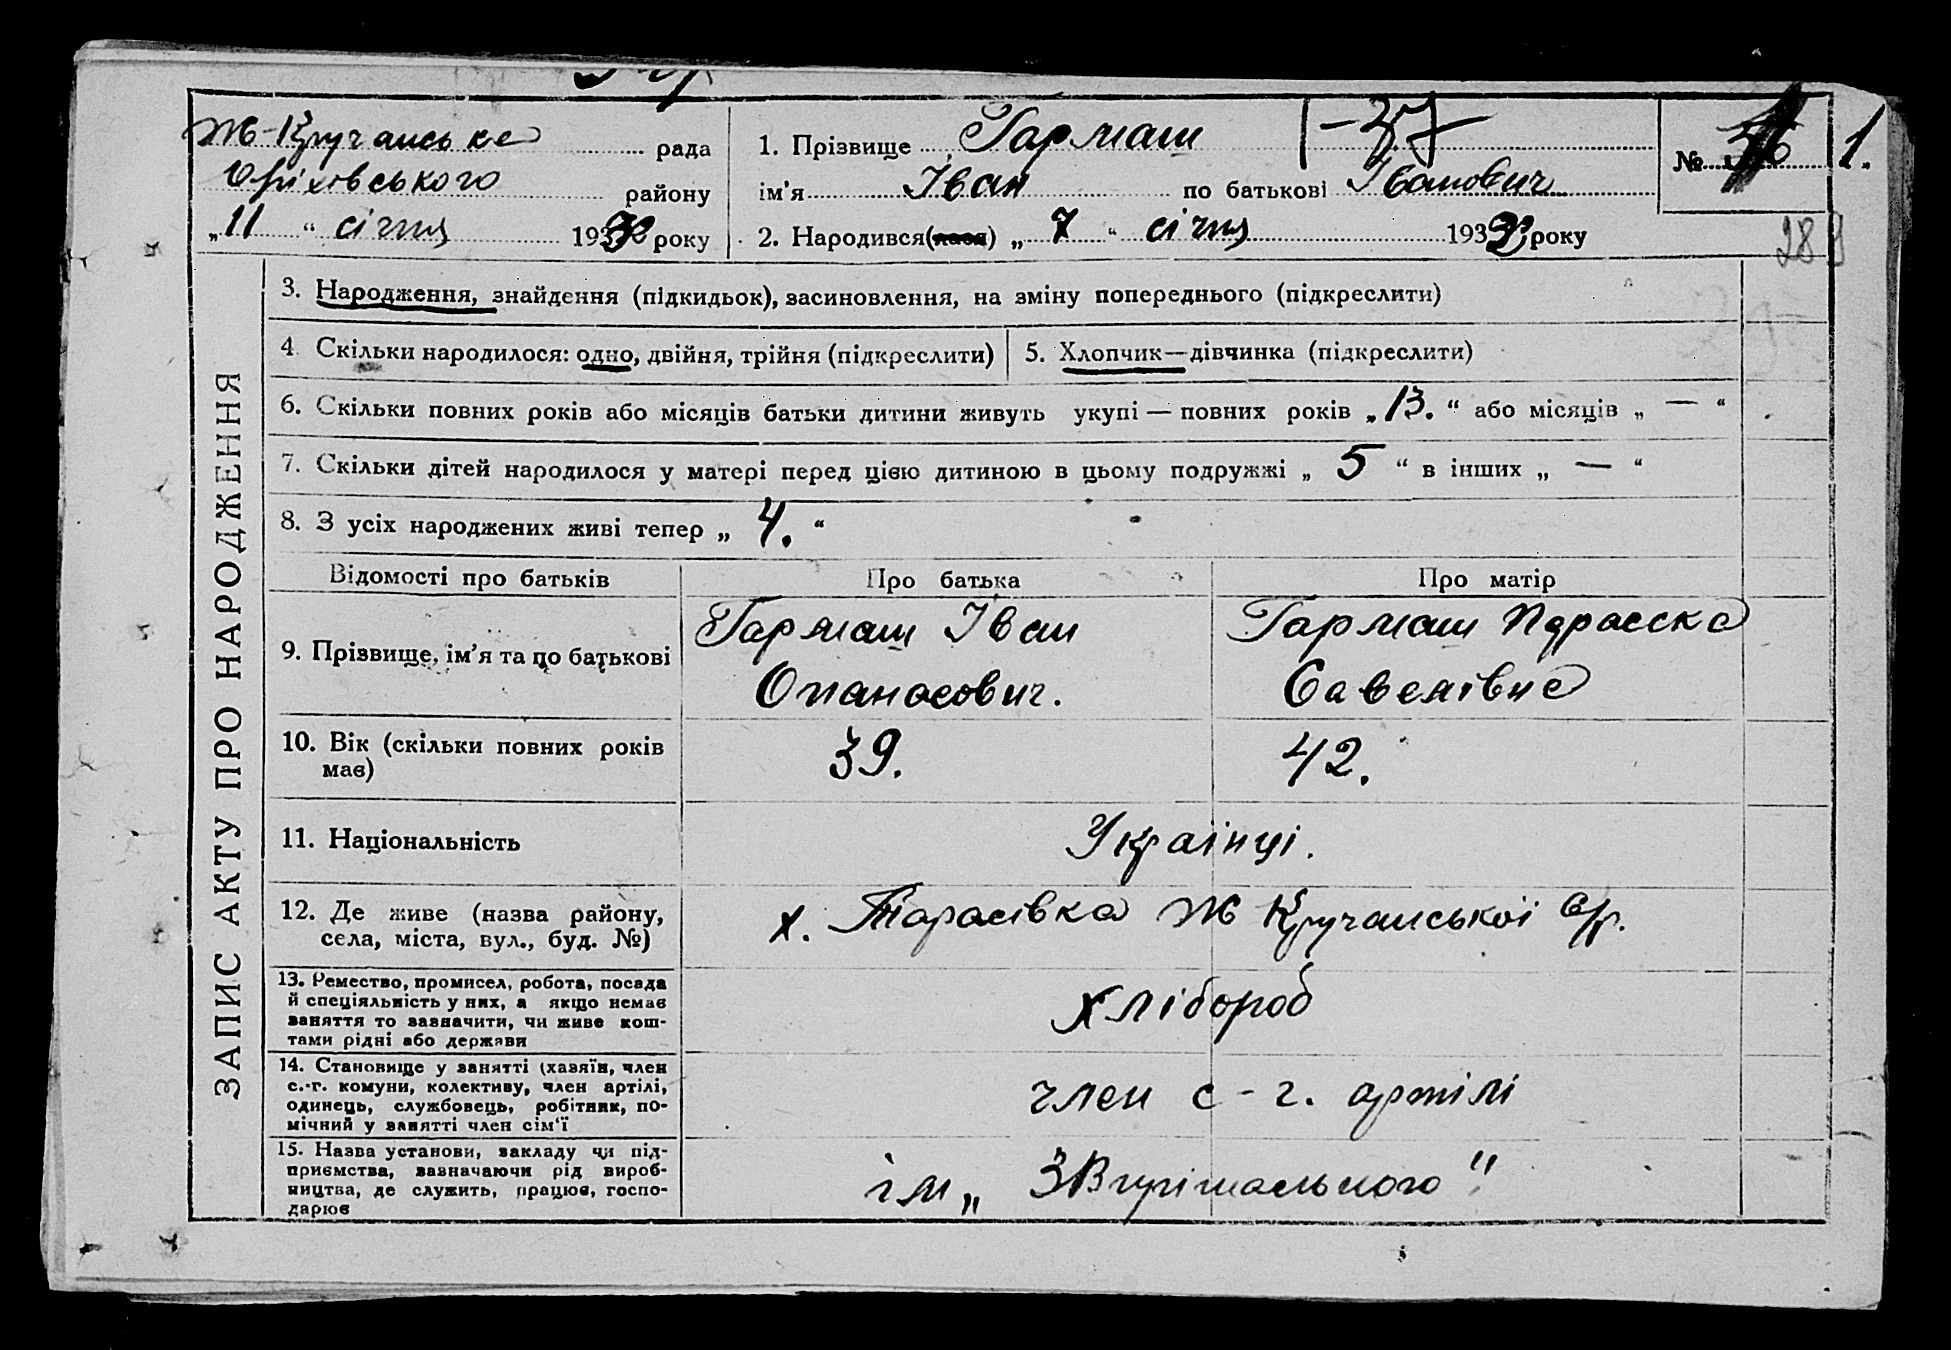 Ж-Кручанське рада
Оріховського району
„11“ січня 193 року
1. Прізвище Гармаш
ім'я Іван по батькові Іванович
2. Народився(лася) „7“ січня 193 року
№ 1.
289
ЗАПИС АКТУ ПРО НАРОДЖЕННЯ
3. Народження, знайдення (підкидьок), засиновлення, на зміну попереднього (підкреслити)
4 Скільки народилося: одно, двійня, трійня (підкреслити)
5. Хлопчик—дівчинка (підкреслити)
6. Скільки повних років або місяців батьки дитини живуть укупі — повних років „13.“ або місяців „—“
7. Скільки дітей народилося у матері перед цією дитиною в цьому подружжі „5“ в інших „—“
8. З усіх народжених живі тепер „4.“
Відомості про батьків
Про батька
Про матір
9. Прізвище, ім'я та по батькові
Гармаш Іван
Опанасович.
Гармаш
Савелівна
10. Вік (скільки повних років
має)
39.
42.
11. Національність
Українці.
12. Де живе (назва району,
села, міста, вул., буд. №)
х. Тарасівка Ж Кручанської с/р.
13. Ремество, промисел, робота, посада
й спеціяльність у них, а якщо немає
заняття то зазначити, чи живе кош-
тами рідні або держави
хлібороб
14. Становище у занятті (хазяїн, член
с.-г. комуни, колективу, член артілі,
одинець, службовець, робітник, по-
мічний у занятті член сім'ї
член с-г. артілі
15. Назва установи, закладу чи під-
приємства, зазначаючи рід вироб-
ництва, де служить, працює, госпо-
дарює
ім „